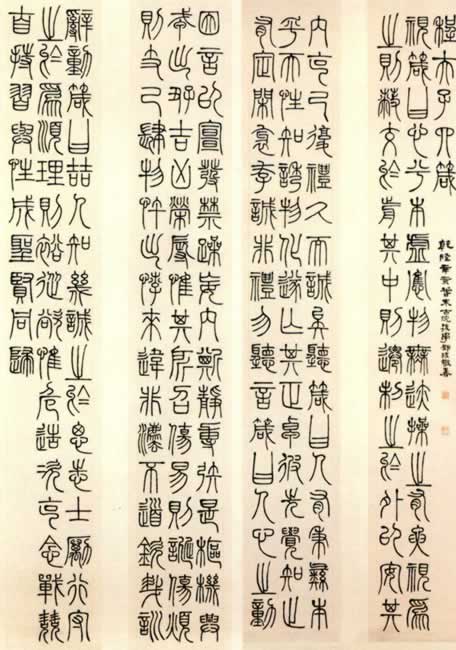 程夫子四箴
視箴曰心兮本虛應物無迹操之有要視為
之則蔽交於前其中則遷制之於外以安其
內克己復禮久而誠矣聽箴曰人有秉彝本
乎天性知誘物化遂亡其正卓彼先覺知止
有定閑邪存誠非禮勿聽言箴曰人心之動
因言以宣發禁躁妄內斯靜專矧是樞機興
戎出好吉凶榮辱惟其所召傷易則誕傷煩
則支己肆物忤出悖來違非法不道欽哉訓
辭動箴曰哲人知幾誠之於思志士勵行守
之於為順理則裕從欲惟危造次克念戰兢
自持習與性成聖賢同歸
乾隆 古浣後學鄧琰敬書